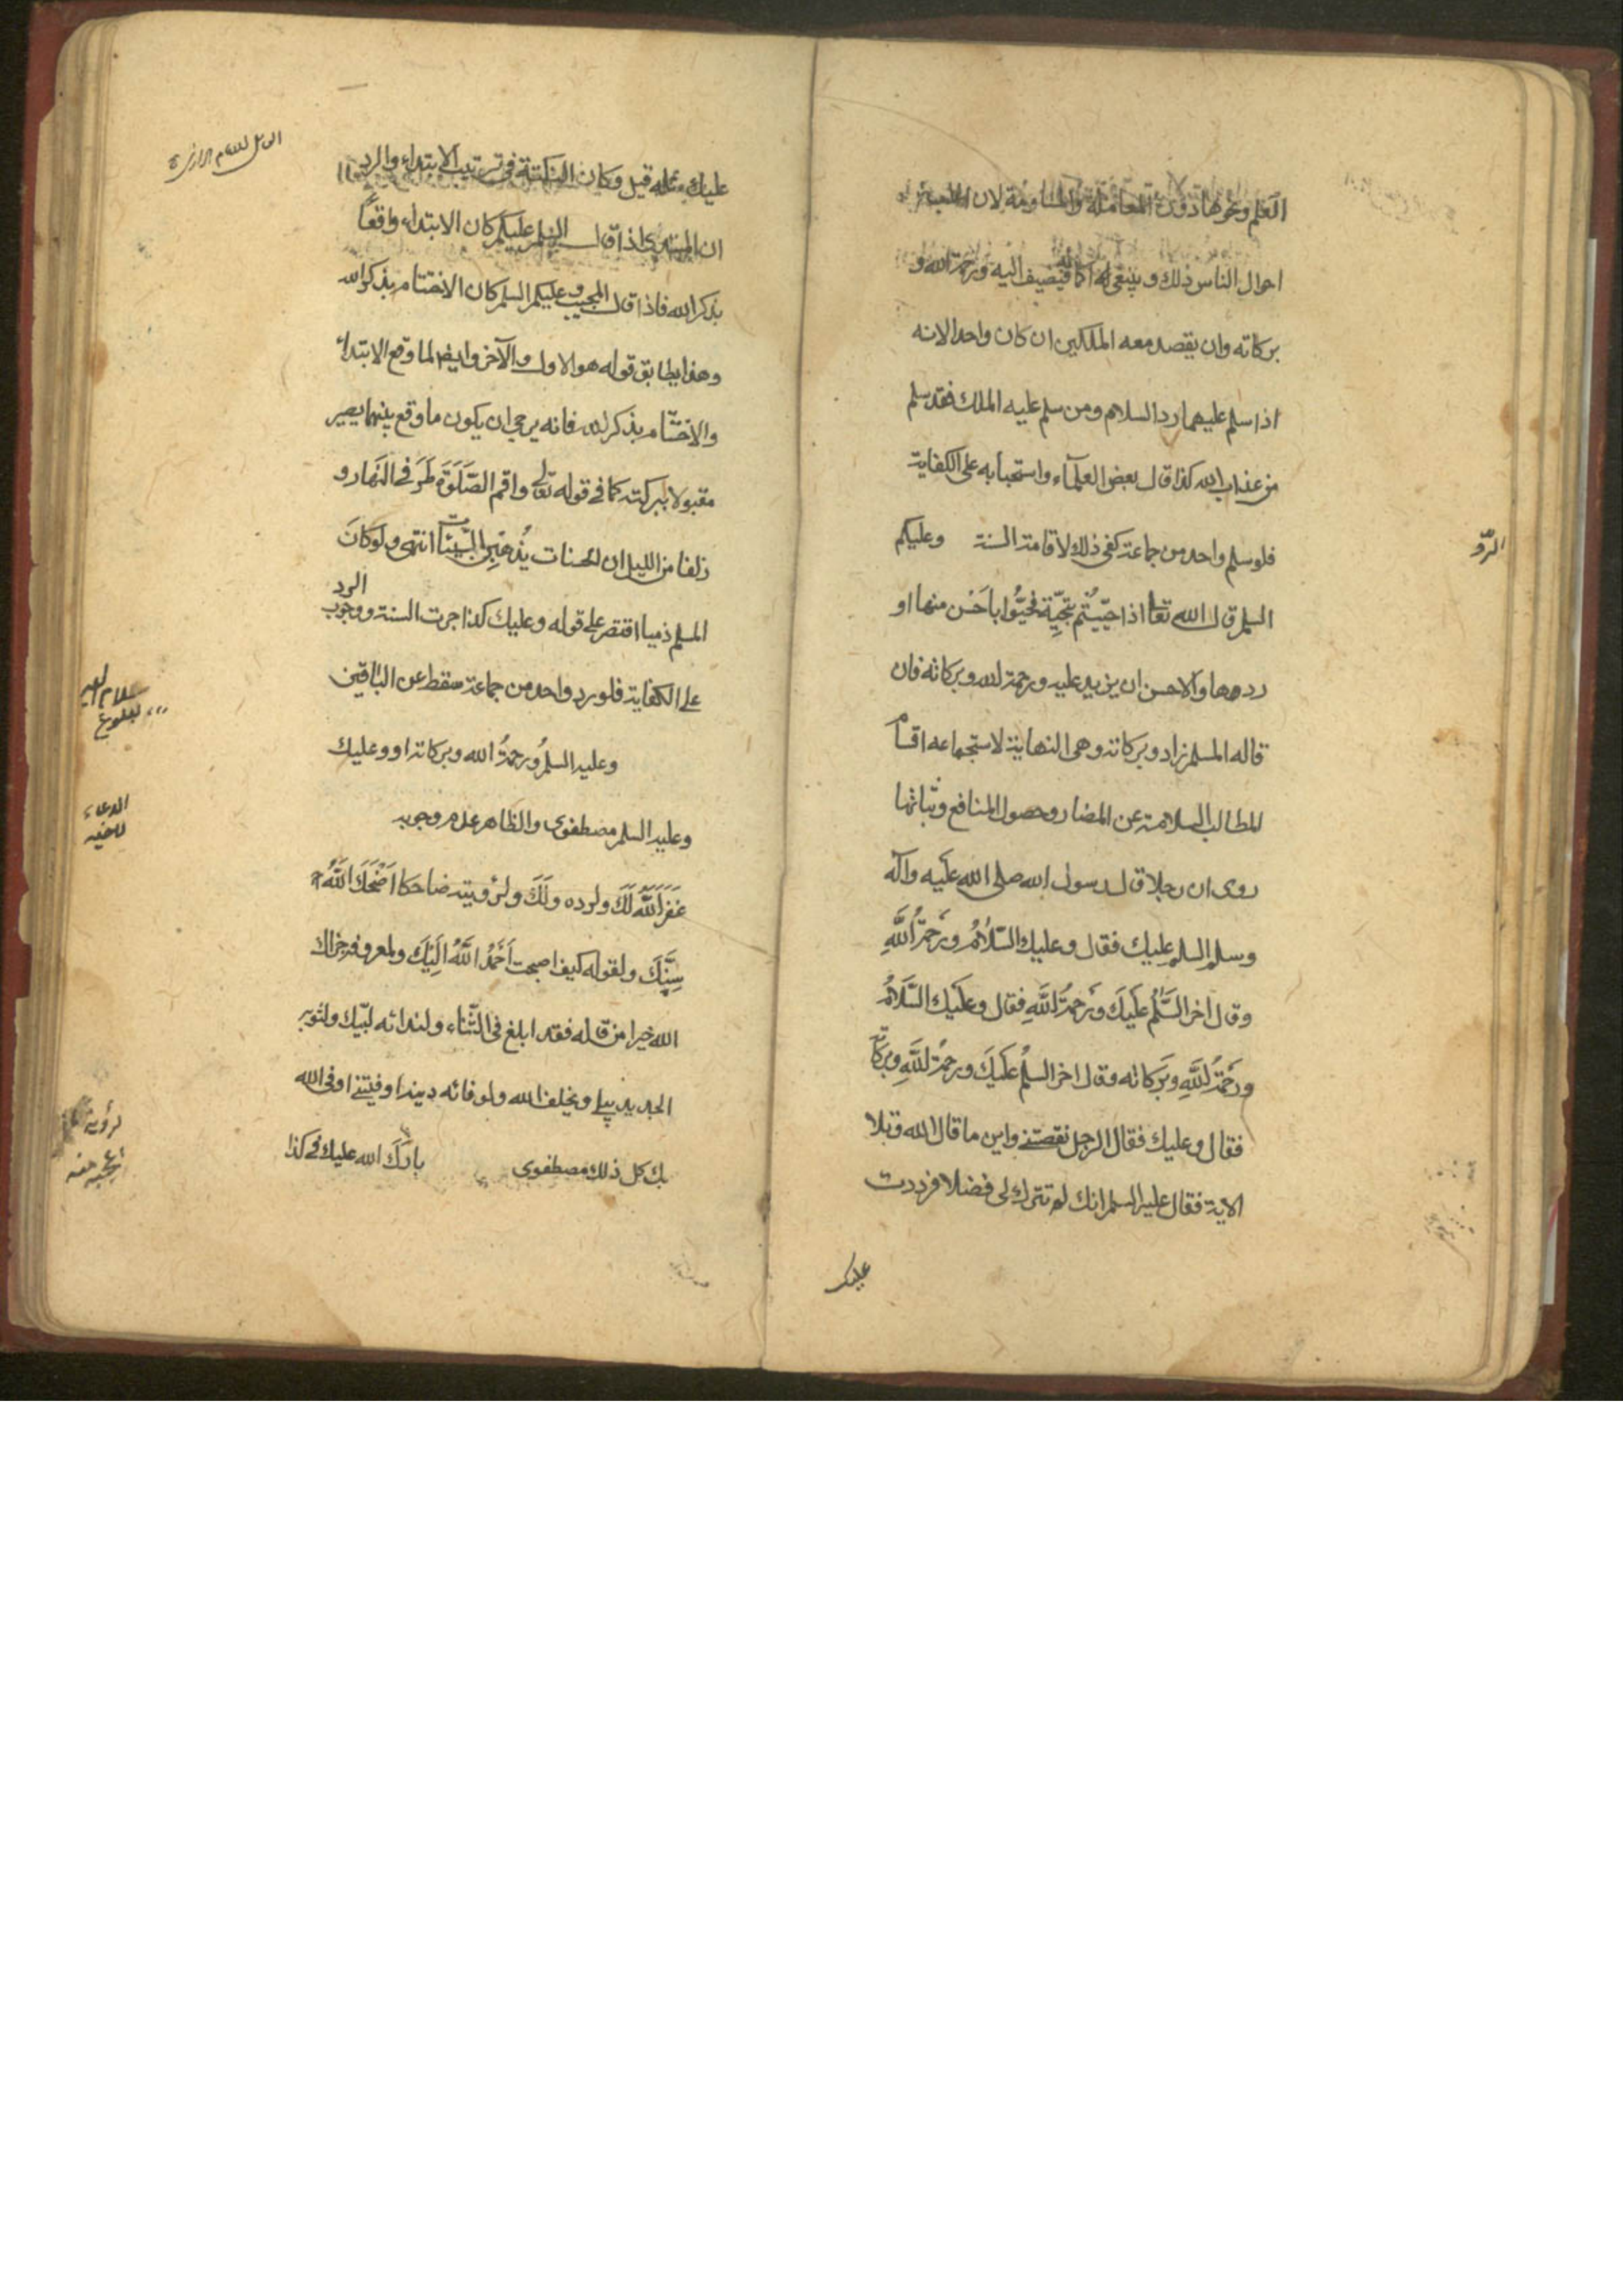 العلم ونحوها دون المعاملة والمساومة لان
احوال الناس ذلك وينبغى له اكماله فيضيف اليه ورحمة الله و
بركاته وان يقصد معه الملكين ان كان واحدا لانه
اذا سلم عليهما ردا السلام ومن سلم عليه الملك فقد سلم
من عذاب الله كذا قال بعض العلمآء واستحبابه على الكفاية
فلو سلم واحد من جماعة كفى ذلك لاقامة السنة وعليكم
الرّد
السلم قال الله تعالى اذا حيّيتُم بتحِيّة فحَيّوا باَحْسَن منها او
ردوها والاحسن ان يزيد عليه ورحمة الله وبركاته فان
قاله المسلم زاد وبركاته وهى النهاية لاستجماعه اقسام
المطالب السلامة عن المضار وحصول المنافع وثباتها
روى ان رجلا قال لرسول الله صلى الله عليه وآله
وسلم السلم عليك فقال وعليك السّلامُ ورَحمةُ اللَّهِ
وقال اخر السَّلمُ عَلَيكَ ورَحمةُ اللَّهِ فقال وعَلَيك السَّلَامُ
ورَحْمَةُ اللَّهِ وبَرَكاته وقال اخر السلمُ عَلَيكَ ورحمةُ اللَّهِ وبركاته
فقال وعليك فقال الرجل نقصتنى واين ما قال الله وتلا
الاية فقال عليه السلم انك لم تترك لى فضلا فرددت
عليك
عليك مثله قيل وكان النكتة فى ترتيب الابتداء والرد
ان المبتدى اذا قال السلم عليكم كان الابتداء واقعاً
بذكر الله فاذا قال المجيب وعليكم السلم كان الاختتام بذكر الله
وهذا يطابق قوله هو الاول والآخر وايضا لما وقع الابتداء
والاختتام بذكر الله فانه يرجى ان يكون ما وقع بينهما يصير
مقبولا ببركته كما فى قوله تعالى واقم الصَّلَوةَ طَرَفى النَّهار و
زلفا من الليل ان الحسنات يُذهبن السَّيّئات انتهى ولو كانَ
المسلم ذميا اقتصر على قوله وعليك كذا جرت السنة ووجوب الرد
على الكفاية فلو رد واحد من جماعة سقط عن الباقين
وعليه السلمُ ورحمةُ الله وبركاته او وعليك
وعليه السلم مصطفوى والظاهر عدم وجوبه
الدعاء
غفرَ اللَّهُ لَكَ ولرده ولَكَ ولرؤيته ضاحكا اَضْحَكَ اللَّهُ
سِنَّكَ ولقوله كيف اصبحت اَحْمَدُ اللَّهَ اِلَيْكَ ولمعروفه جزاك
الله خيرا من قاله فقد ابلغ فى الثّناء ولندائه لبّيك ولثوبه
الجديد يبلى ويخلف الله ولوفائه دينه اوفيتنى اوفى الله
بك كل ذلك مصطفوى بارَكَ الله عليك فى كذا